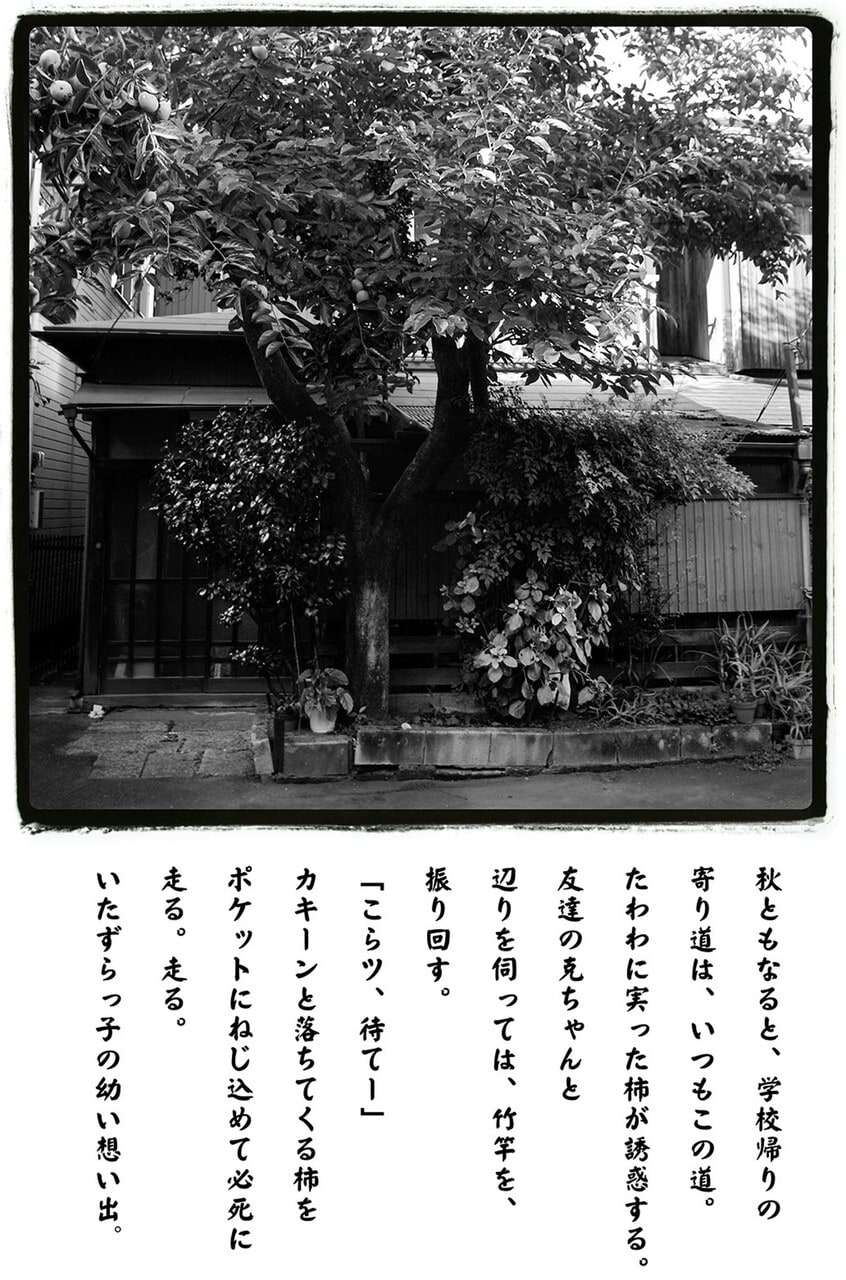 秋ともなると、学校帰りの
寄り道は、いつもこの道。
たわわに実った柿が誘惑する。
友達の克ちゃんと
辺りを伺っては、竹竿を、
振り回す。
「こらツ、待てー」
カキーンと落ちてくる柿を
ポケットにねじ込めて必死に
走る。走る。
いたずらっ子の幼い想い出。